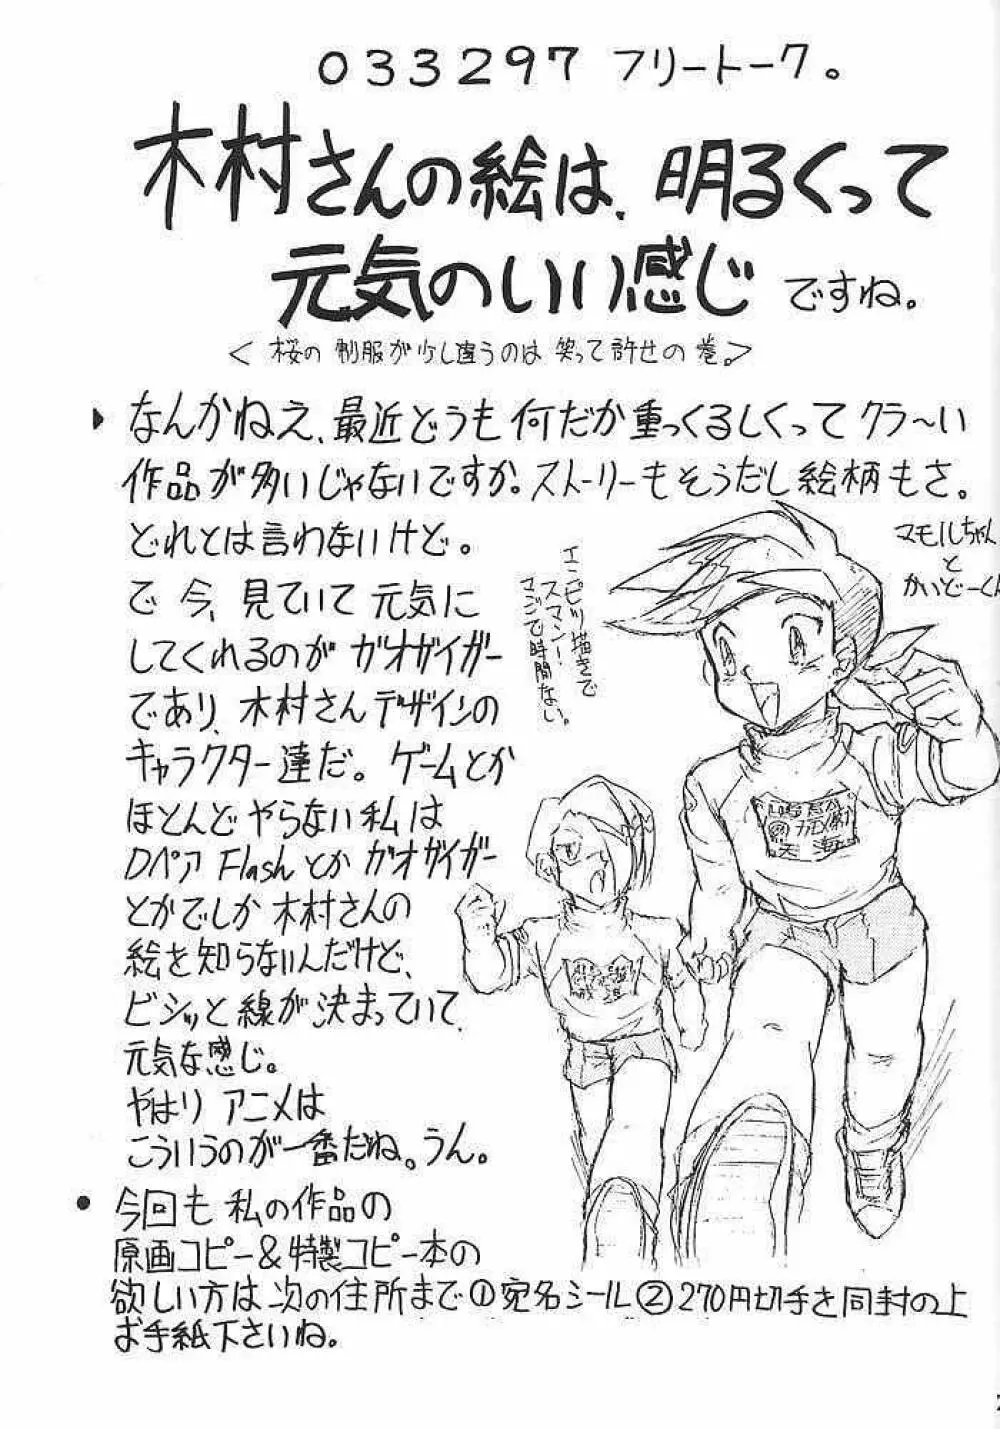 033297 フリートーク。
木村さんの絵は、明るくって
元気のいい感じですね。
＜桜の制服が少し違うのは笑って許せの巻。＞
なんかねえ、最近どうも何だか重っくるしくってクラ～い
作品が多いじゃないですか。ストーリーもそうだし絵柄もさ。
どれとは言わないけど。
で今、見ていて元気に
してくれるのがガオガイガー
であり、木村さんデザインの
キャラクター達だ。ゲームとか
ほとんどやらない私は
Dペア Flashとかガオガイガー
とかでしか木村さんの
絵を知らないんだけど、
ビシッと線が決まっていて、
元気な感じ。
やはりアニメは
こういうのが一番だね。うん。
エンピツ描きで
スマン!
マジで時間ない。
マモルちゃん
と
かいどーくん
● 今回も私の作品の
原画コピー&特製コピー本の
欲しい方は次の住所まで①宛名シール②270円切手を同封の上
お手紙下さいね。